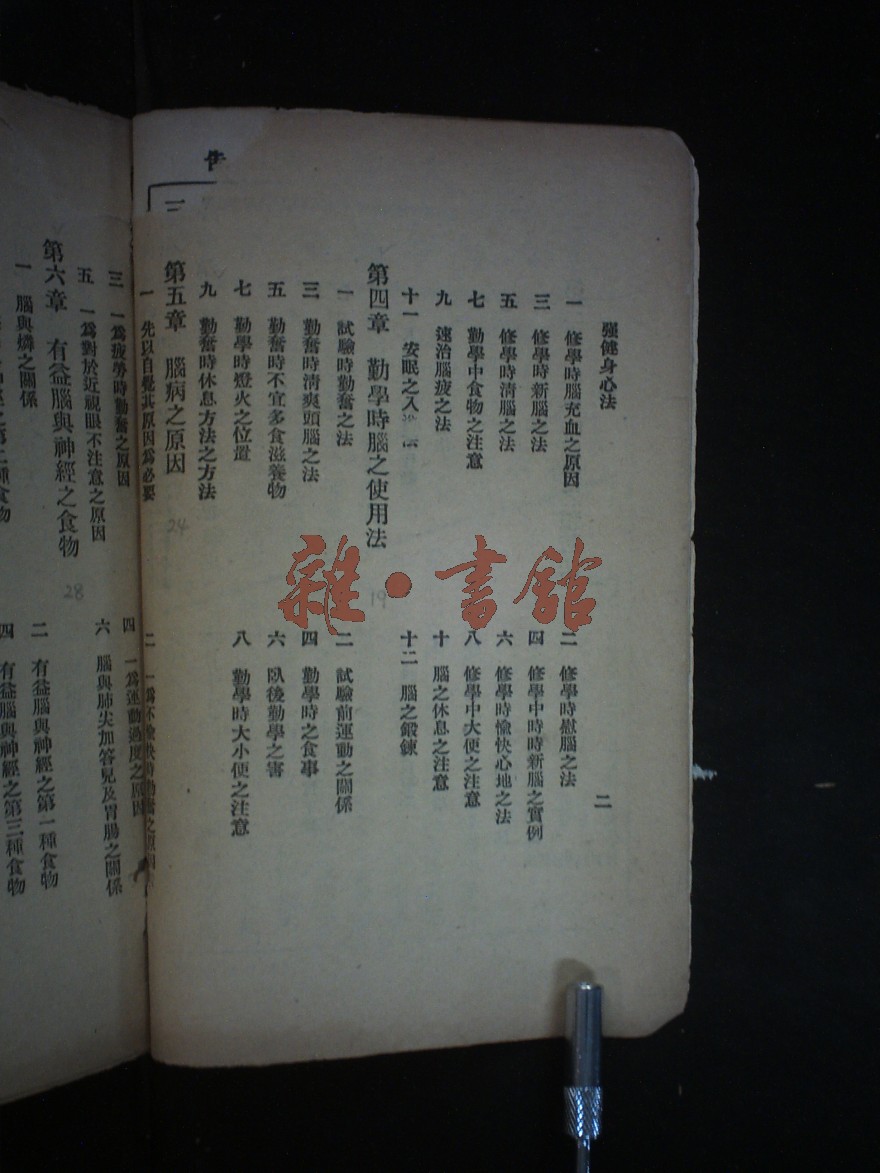 强健身心法
二
一 修學時腦充血之原因
二 修學時慰腦之法
三 修學時新腦之法
四 修學中時時新腦之實例
五 修學時清腦之法
六 修學時愉快心地之法
七 勤學中食物之注意
八 修學中大便之注意
九 速治腦疲之法
十 腦之休息之注意
十一 安眠之入
十二 腦之鍛鍊
第四章 勤學時腦之使用法
19
一 試驗時勤奮之法
二 試驗前運動之關係
三 勤奮時清爽頭腦之法
四 勤學時之食事
五 勤奮時不宜多食滋養物
六 臥後勤學之害
七 勤學時燈火之位置
八 勤學時大小便之注意
九 勤奮時休息方法之方法
第五章 腦病之原因
24
一 先以自覺其原因爲必要
二 一爲不愉快時勤奮之原因
三 一爲疲勞時勤奮之原因
四 一爲運動過度之原因
五 一爲對於近視眼不注意之原因
六 腦與肺尖加答兒及胃腸之關係
第六章 有益腦與神經之食物
28
一 腦與燐之關係
二 有益腦與神經之第一種食物
四 有益腦與神經之第三種食物
雜·書館